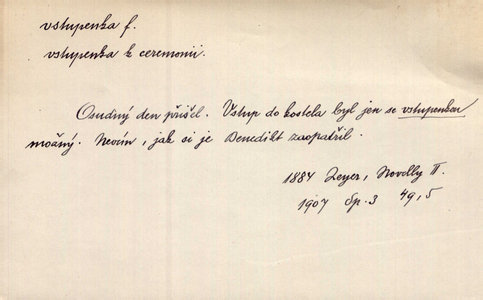 vstupenka f.
vstupenka k ceremonii.
Osudný den přišel. Vstup do kostela byl jen se vstupenkou
možný. Nevím, jak si je Benedikt zaopatřil.
1884 Zeyer, Novelly II.
1907 Sp. 3 49,5